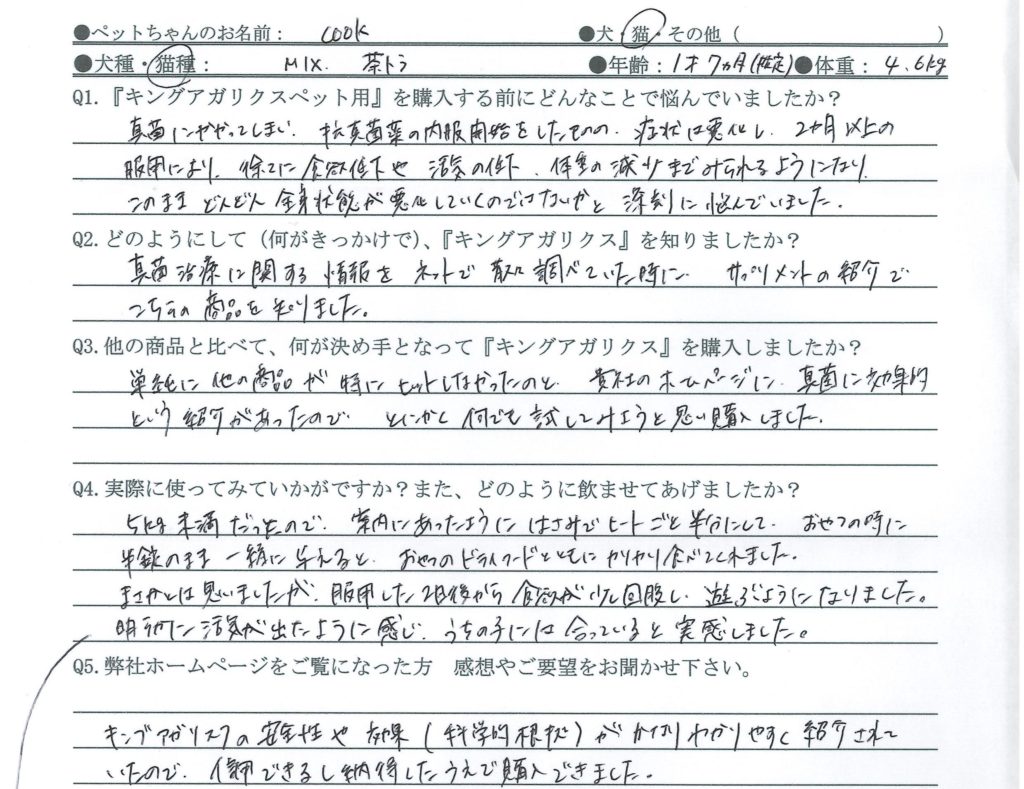 ●ペットちゃんのお名前： cook ●犬・猫・その他（ ）
●犬種・猫種： MIX. 茶トラ ●年齢：1才7ヵ月(推定)●体重：4.6kg
Q1.『キングアガリクスペット用』を購入する前にどんなことで悩んでいましたか？
真菌にかかってしまい、抗真菌薬の内服開始をしたものの、症状は悪化し、2ヶ月以上の
服用により、徐々に食欲低下や活気の低下、体重の減少までみられるようになり、
このままどんどん全身状態が悪化していくのではないかと深刻に悩んでいました。
Q2.どのようにして（何がきっかけで）、『キングアガリクス』を知りましたか？
真菌治療に関する情報をネットで 調べていた時に、サプリメントの紹介で
こちらの商品を知りました。
Q3.他の商品と比べて、何が決め手となって『キングアガリクス』を購入しましたか？
単純に他の商品が特にヒットしなかったのと、貴社のホームページに、真菌に効果的
という紹介があったので、とにかく何でも試してみようと思い購入しました。
Q4.実際に使ってみていかがですか？また、どのように飲ませてあげましたか？
5kg未満だったので、案内にあったようにはさみでヒートごと半分にして、おやつの時に
半錠のまま一緒に与えると、おやつのドライフードとともにカリカリ食べてくれました。
まさかとは思いましたが、服用した2日後から食欲が少し回復し、遊ぶようになりました。
明らかに活気が出たように感じ、うちの子には合っていると実感しました。
Q5.弊社ホームページをご覧になった方　感想やご要望をお聞かせ下さい。
キングアガリスクの安全性や効果（科学的根拠）がかなりわかりやすく紹介されて
いたので、信用できるし納得したうえで購入できました。